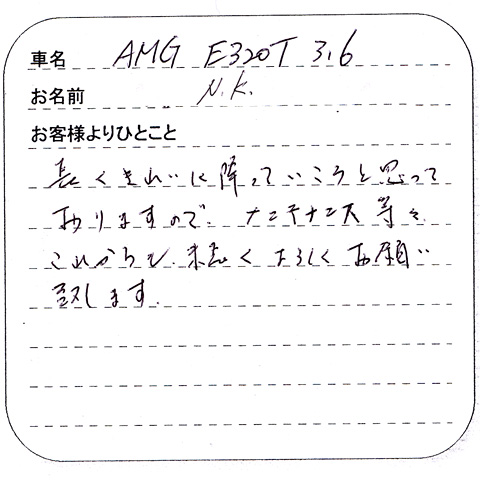 車名 AMG E320T 3.6
お名前 N.K.
お客様よりひとこと
長くきれいに降っていこうと思って
おりますので、メンテナンス等々
これからも、末長くよろしくお願い
致します。